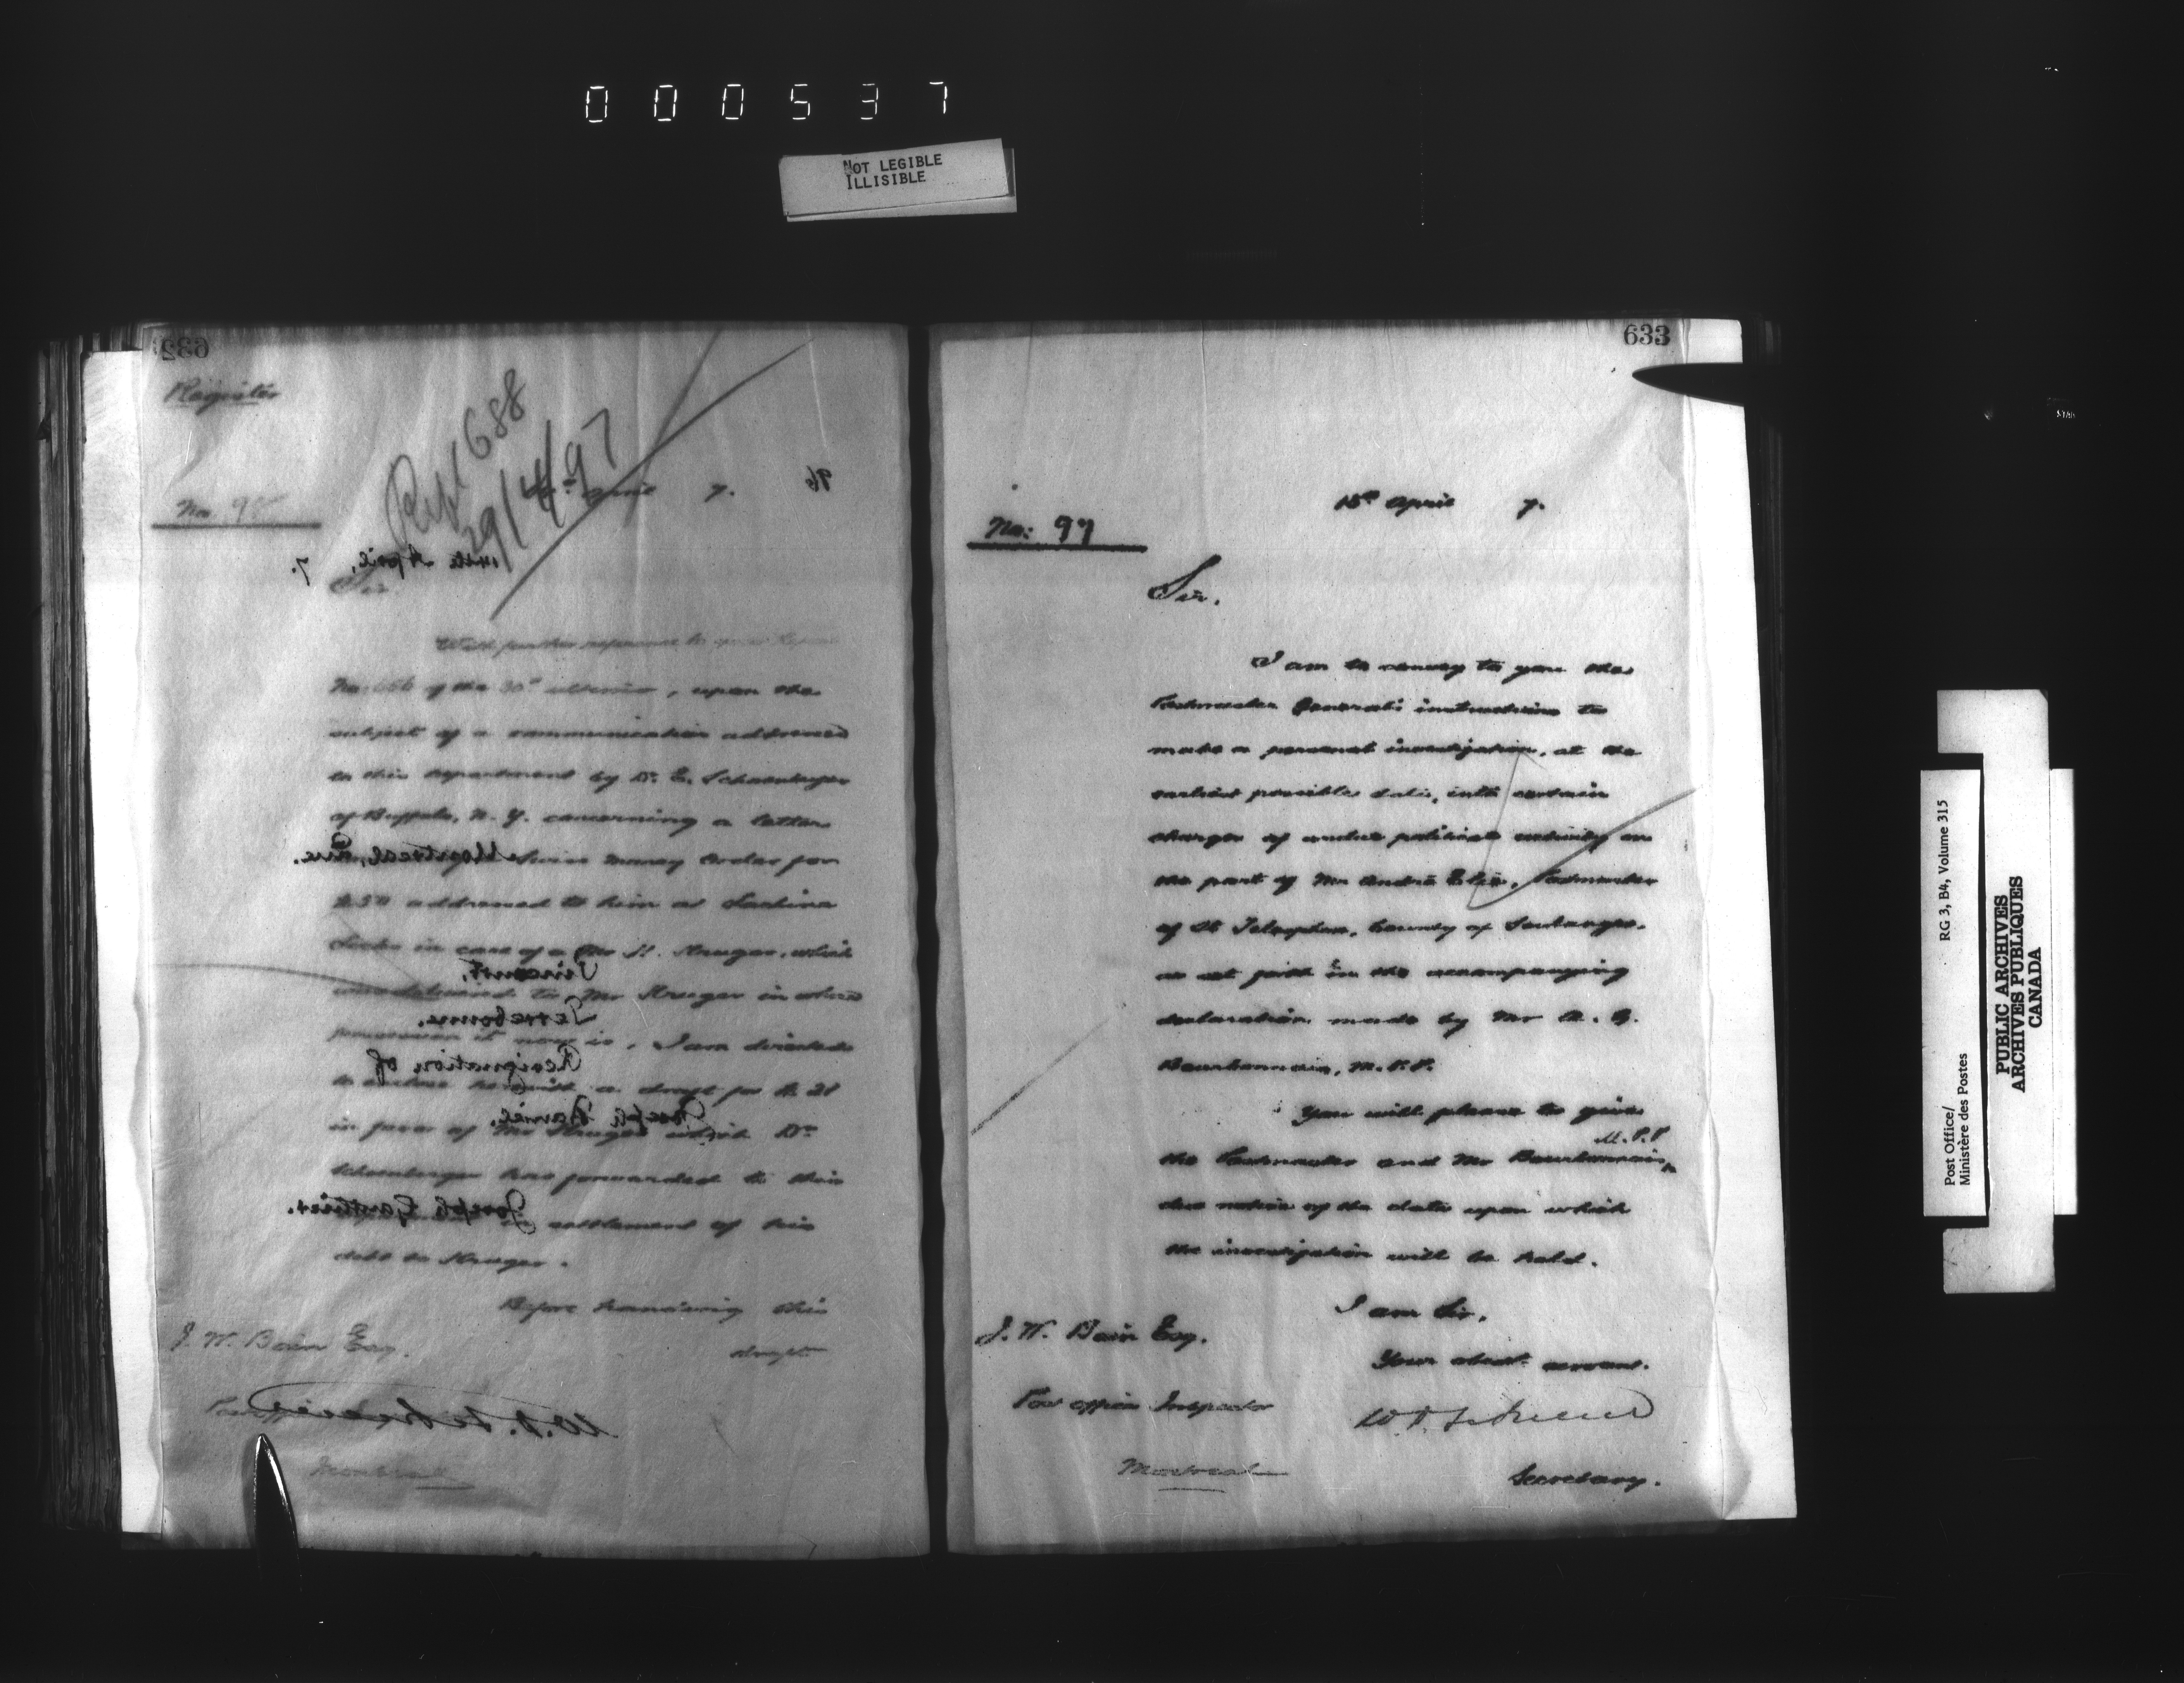 000537
NOT LEGIBLE
ILLISIBLE
632
Register
Repl 688
29/4/97
No 95
April 7.
96
14th April, 7.
Sir
With further reference to your Report
No: 656 of the 30th ultimo, upon the
subject of a communication addressed
to this department by Dr. E. Schoenberger
of Buffalo, N. Y. concerning a letter
Swiss Money Order for
addressed to him at Lachine
Locks in care of a Mr H. Kruger, which
was delivered to Mr Kruger in whose
possession it now is, I am directed
to enclose herewith a draft for
in favor of Mr Kruger which Dr.
Schoenberger has forwarded to this
settlement of his
debt to Kruger.
Before handing this
draft
J. W. Bain Esq.
Post Office
Montreal
Montreal, Que.
Vincent,
Terrebonne.
Resignation of
Joseph
Joseph Gauthier.
633
15th April 7.
No: 97
Sir.
I am to convey to you the
Postmaster General's instructions to
make a personal investigation, at the
earliest possible date, into certain
charges of undue political activity on
the part of Mr André Elie, Postmaster
of St Telesphore, County of Soulanges,
as set forth in the accompanying
declaration made by Mr A. G.
Bourbonnais, M.P.P.
You will please to give
the Postmaster and Mr Bourbonnais, M.P.P
due notice of the date upon which
the investigation will be held.
I am Sir,
Your obedt. servant.
W. D. LeSueur
Secretary.
J. W. Bain Esq.
Post Office Inspector
Montreal
Post Office/
Ministère des Postes
RG 3, B4, Volume 315
PUBLIC ARCHIVES
ARCHIVES PUBLIQUES
CANADA